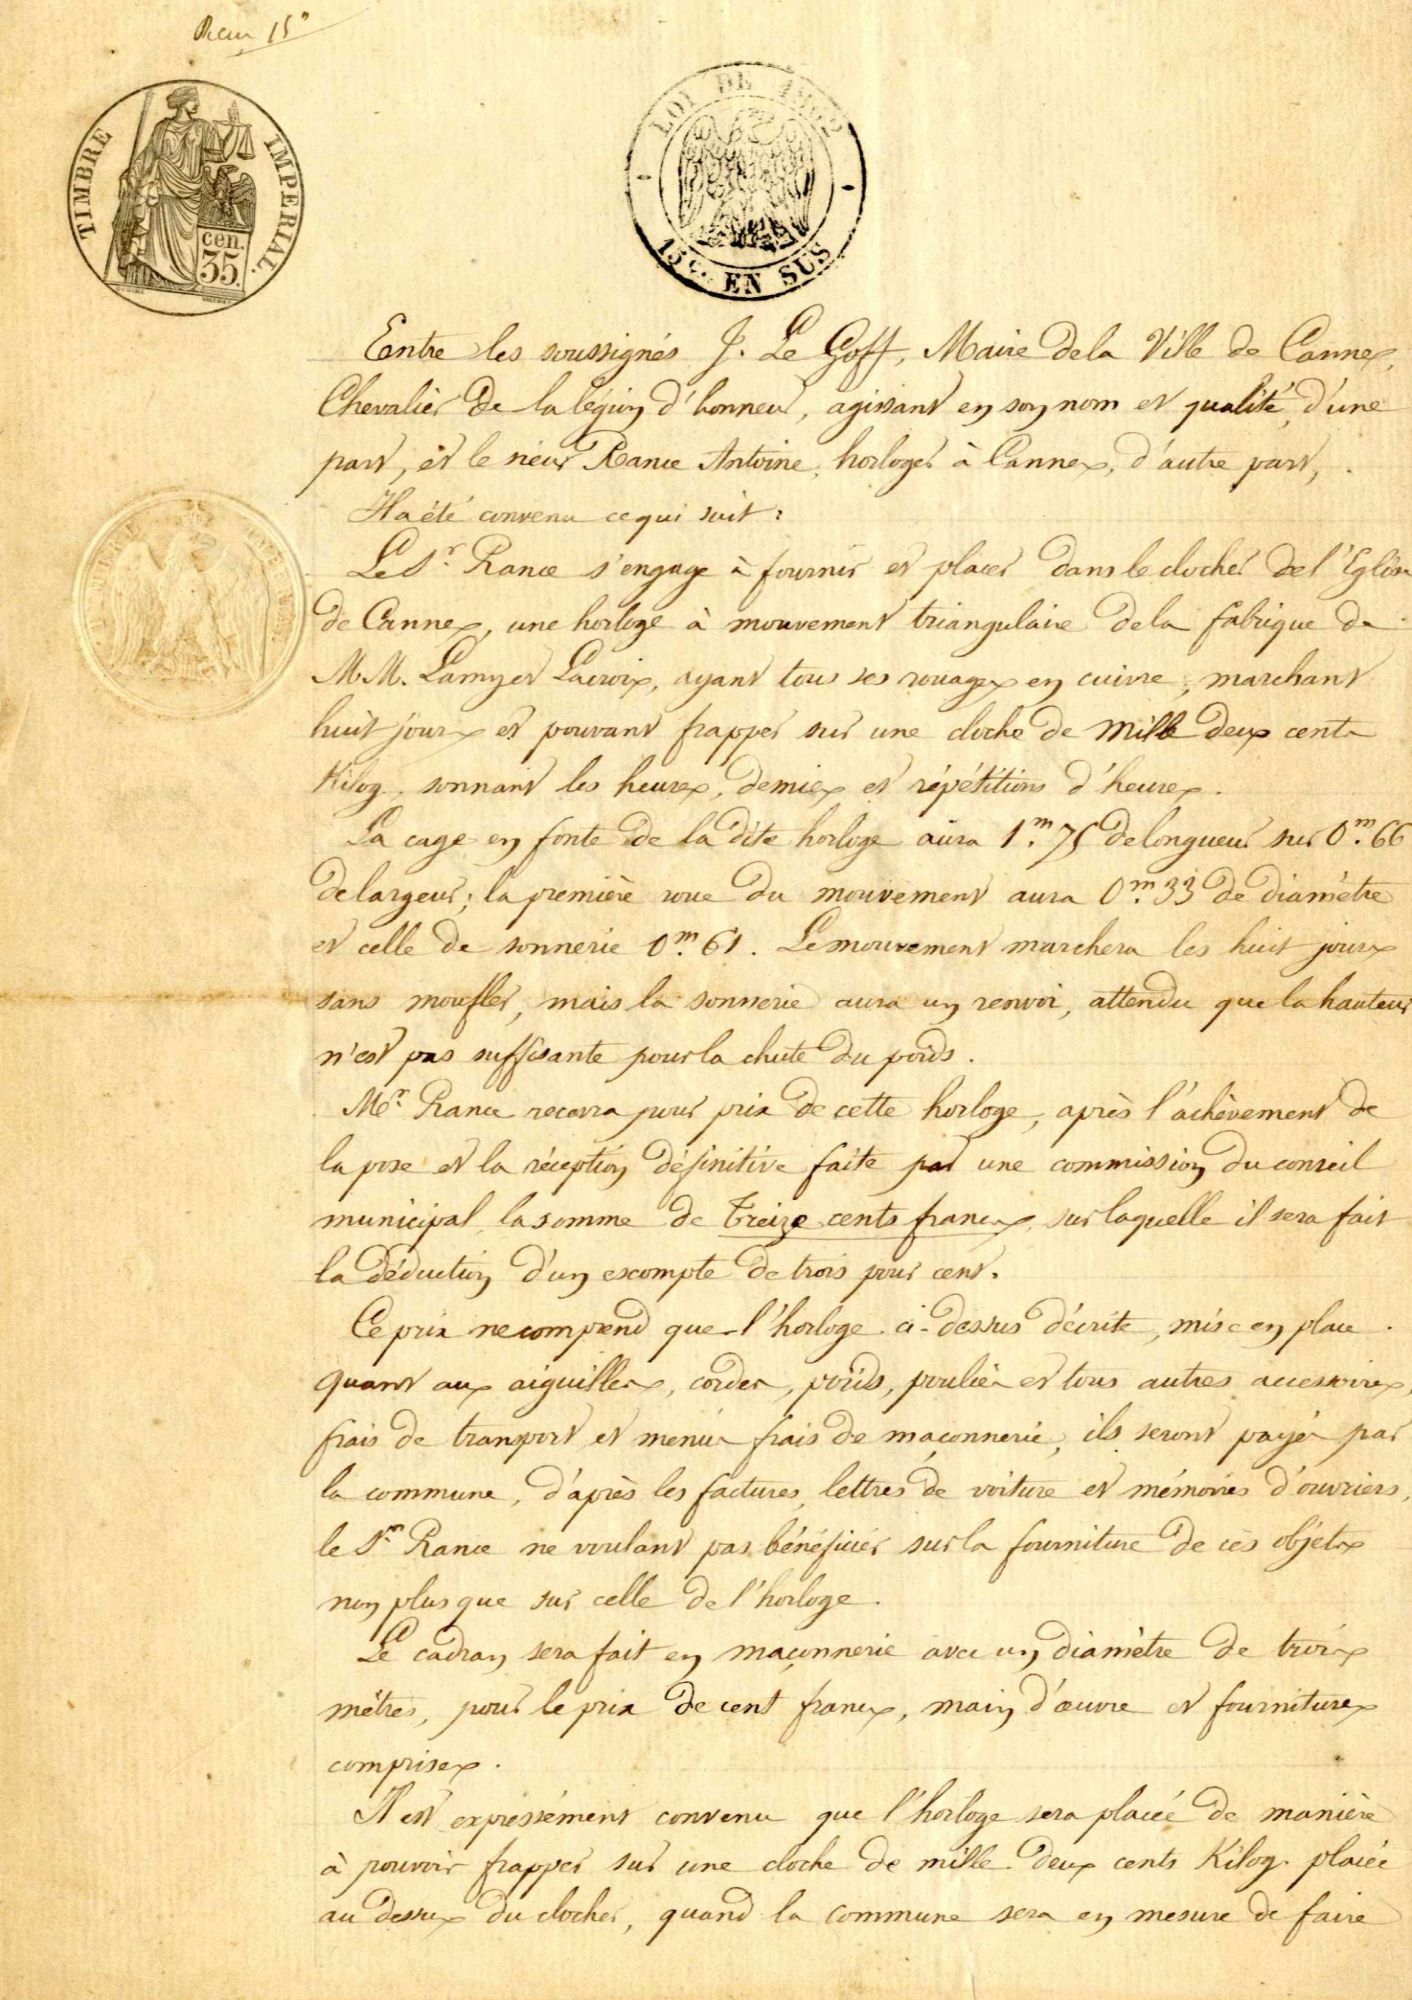 Reçu 15
TIMBRE IMPERIAL.
cen.
35.
LOI DE 1862
15 c. EN SUS
Entre les soussignés J. Le Goff, Maire de la Ville de Cannes,
Chevalier de la légion d'honneur, agissant en son nom et qualité, d'une
part, et le sieur Rance Antoine, horloger à Cannes, d'autre part,
Il a été convenu ce qui suit :
Le Sr. Rance s'engage à fournir et placer dans le clocher de l'Eglise
de Cannes, une horloge à mouvement triangulaire de la fabrique de
M.M. Lamy et Lacroix, ayant tous ses rouages en cuivre, marchant
huit jours et pouvant frapper sur une cloche de mille deux cents
Kilog. sonnant les heures, demies et répétitions d'heures.
La cage en fonte de la dite horloge aura 1m.75 de longueur sur 0m.66
de largeur; la première roue du mouvement aura 0m.33 de diamètre
et celle de sonnerie 0m.61. Le mouvement marchera les huit jours
sans moufler, mais la sonnerie aura un renvoi, attendu que la hauteur
n'est pas suffisante pour la chute du poids.
Mr. Rance recevra pour prix de cette horloge, après l'achèvement de
la pose et la réception définitive faite par une commission du conseil
municipal, la somme de treize cents francs, sur laquelle il sera fait
la déduction d'un escompte de trois pour cent.
Ce prix ne comprend que l'horloge ci-dessus décrite, mise en place.
quant aux aiguilles, cordes, poids, poulies et tous autres accessoires,
frais de transport et menus frais de maçonnerie, ils seront payés par
la commune, d'après les factures, lettres de voiture et mémoires d'ouvriers,
le Sr. Rance ne voulant pas bénéficier sur la fourniture de ces objets
non plus que sur celle de l'horloge.
Le cadran sera fait en maçonnerie avec un diamètre de trois
mètres, pour le prix de cent francs, main d'œuvre et fournitures
comprises.
Il est expressément convenu que l'horloge sera placée de manière
à pouvoir frapper sur une cloche de mille deux cents Kilog. placée
au dessus du clocher, quand la commune sera en mesure de faire